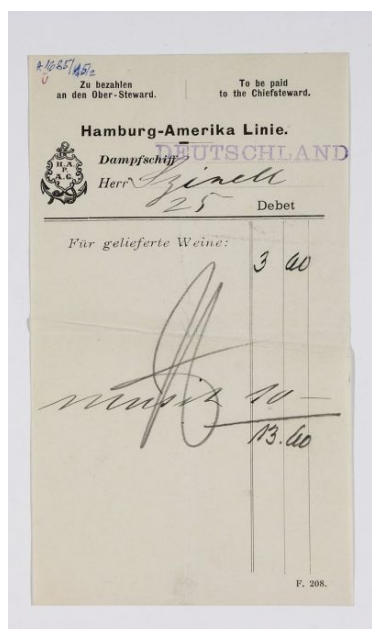 A 1685/15/2
Zu bezahlen
an den Ober-Steward.
To be paid
to the Chiefsteward.
Hamburg-Amerika Linie.
H. A. P. A. G.
Dampfschiff DEUTSCHLAND
Herr Szinell
25 Debet
Für gelieferte Weine:
3 60
Musik 10 —
13.60
F. 208.